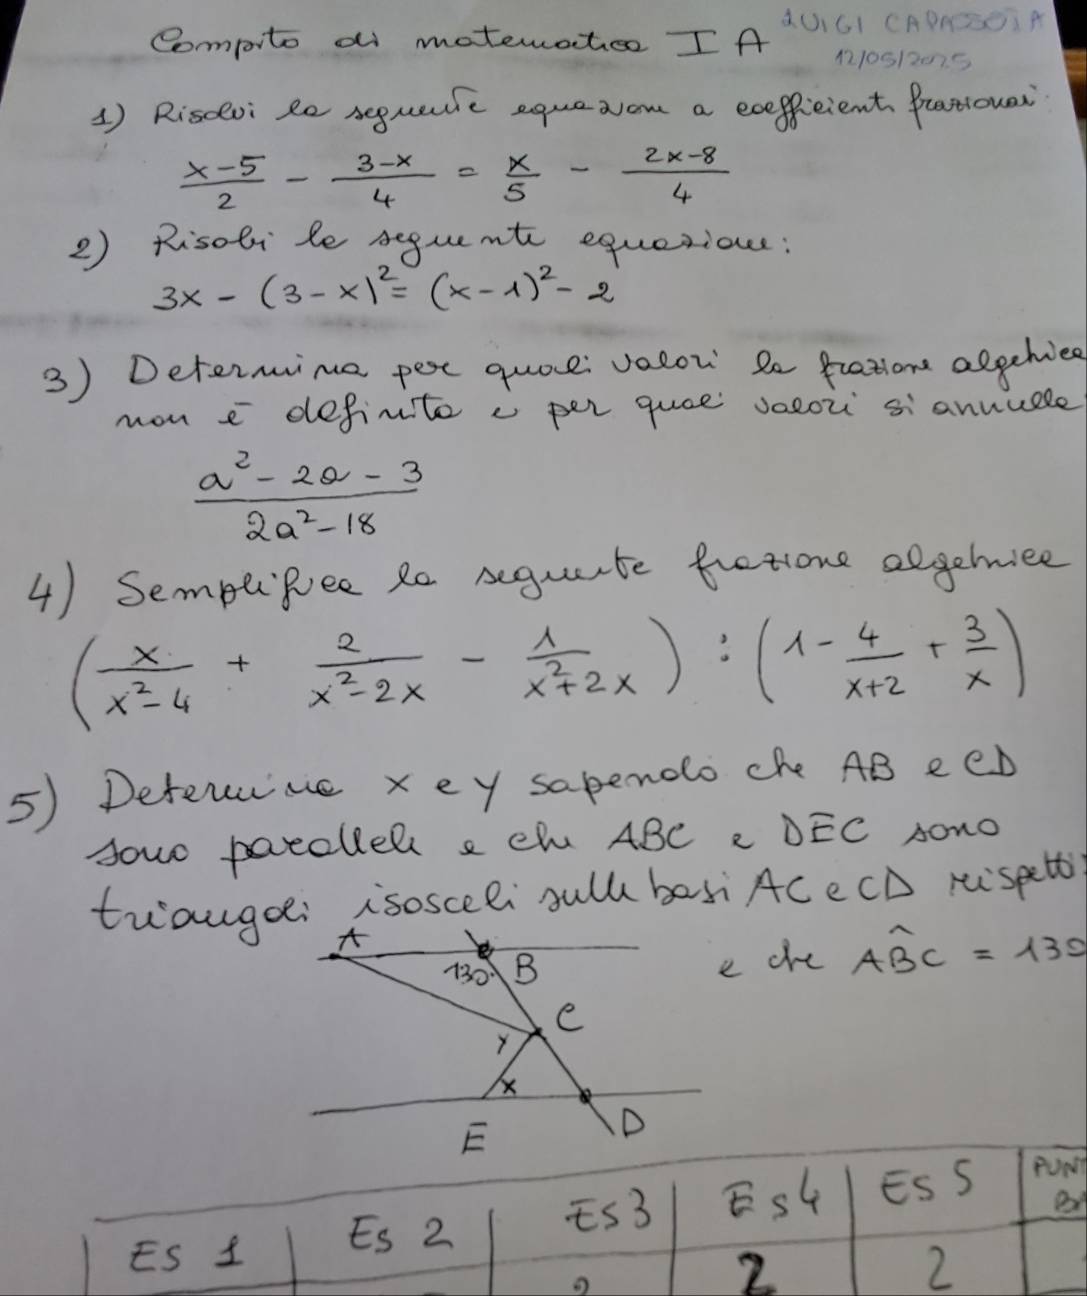 Compito di matematica I A
LUIGI
12/05/2025
1) Risolvi la seguente equazione a coefficienti frazionari
x-5/2 - 3-x/4 = x/5 - 2x-8/4
2) Risolvi le seguente equazione:
3x - (3-x)² = (x-1)² - 2
3) Determina per quali valori la frazione algebrica
non è definita e per quali valori si annulla
a² - 2a - 3 / 2a² - 18
4) Semplifica la seguente frazione algebrica
(x/x²-4 + 2/x²-2x - 1/x²+2x) : (1 - 4/x+2 + 3/x)
5) Determina x e y sapendo che AB e CD
sono paralleli e che ABC e DEC sono
triangoli isosceli sulle basi AC e CD rispetti
e che AB̂C = 130
A
130° B
C
y
x
E
D
Es 1 Es 2 Es 3 Es 4 Es 5 PUNT
2 2 2